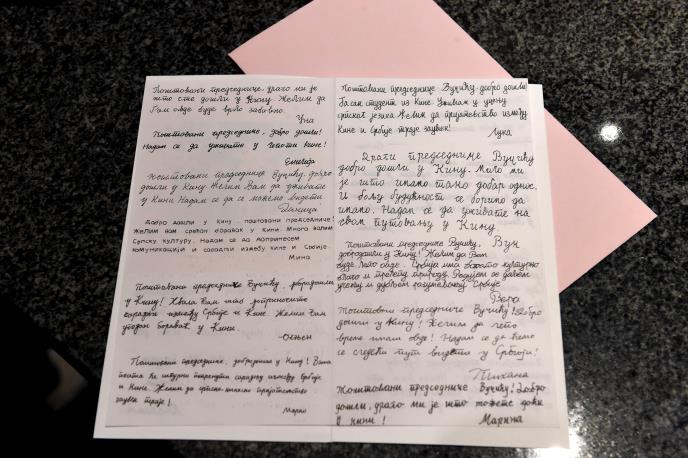 Поштовани председниче, драго ми је
што сте дошли у Кину. Желим да
Вам овде буде врло забавно.
Уна
Поштовани председниче, добро дошли!
Надам се да уживате у лепоти Кине!
Емилија
Поштовани председниче Вучићу, драго
дошли у Кину Желим Вам да уживате
у Кини Надам се да се можемо видети
Даница
Добро дошли у Кину, поштовани председниче!
Желим вам срећан боравак у Кини. Много волим
Српску културу. Надам се да допринесем
комуникацији и сарадњи између Кине и Србије.
Мина
Поштовани председниче Вучићу, добродошли
у Кину! Хвала Вам што доприносите
сарадњи између Србије и Кине. Желим Вам
угодан боравак у Кини.
Огњен
Поштовани председниче, добродошли у Кину! Ваша
посета ће сигурно покренути сарадњу између Србије
и Кине. Желим да српско-кинеско пријатељство
заувек траје!
Марко
Поштовани председниче Вучићу, добро дошли!
Ја сам студент из Кине. Уживам у учењу
српског језика Желим да пријатељство између
Кине и Србије траје заувек!
Лука
Драги председниче Вучићу
добро дошли у Кину. Мило ми
је што имамо тако добар однос.
И бољу будућност се боримо да
имамо. Надам се да уживате на
свом путовању у Кину
Вук
Поштовани председниче Вучићу,
добродошли у Кину! Желим да Вам
буде лепо овде. Србија има богату културу
и природу.
учењу и дубљем разумевању Србије
Вера
Поштовани председниче Вучићу! Добро
дошли у Кину! Желим да лепо
време имам овде! Надам се да ћемо
се следећи пут видети у Србији!
Тихана
Поштовани председниче Вучићу! Добро
дошли, драго ми је што можете доћи
у Кини!
Марина